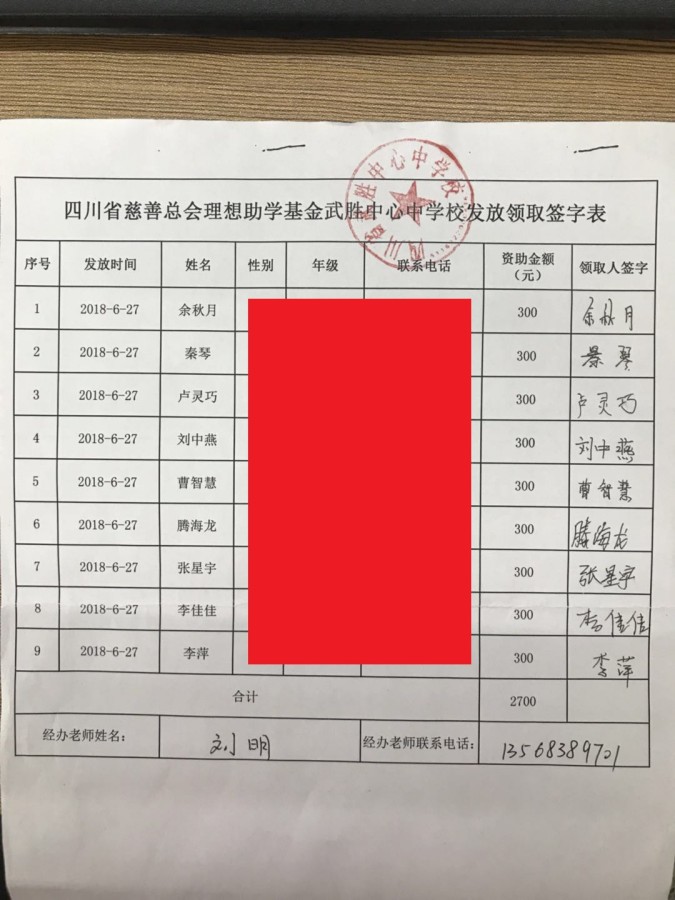 四川省慈善总会理想助学基金武胜中心中学校发放领取签字表
序号 发放时间 姓名 性别 年级 联系电话 资助金额（元） 领取人签字
1 2018-6-27 余秋月 300 余秋月
2 2018-6-27 秦琴 300 秦琴
3 2018-6-27 卢灵巧 300 卢灵巧
4 2018-6-27 刘中燕 300 刘中燕
5 2018-6-27 曹智慧 300 曹智慧
6 2018-6-27 腾海龙 300 腾海龙
7 2018-6-27 张星宇 300 张星宇
8 2018-6-27 李佳佳 300 李佳佳
9 2018-6-27 李萍 300 李萍
合计 2700
经办老师姓名： 刘明 经办老师联系电话： 13568389721